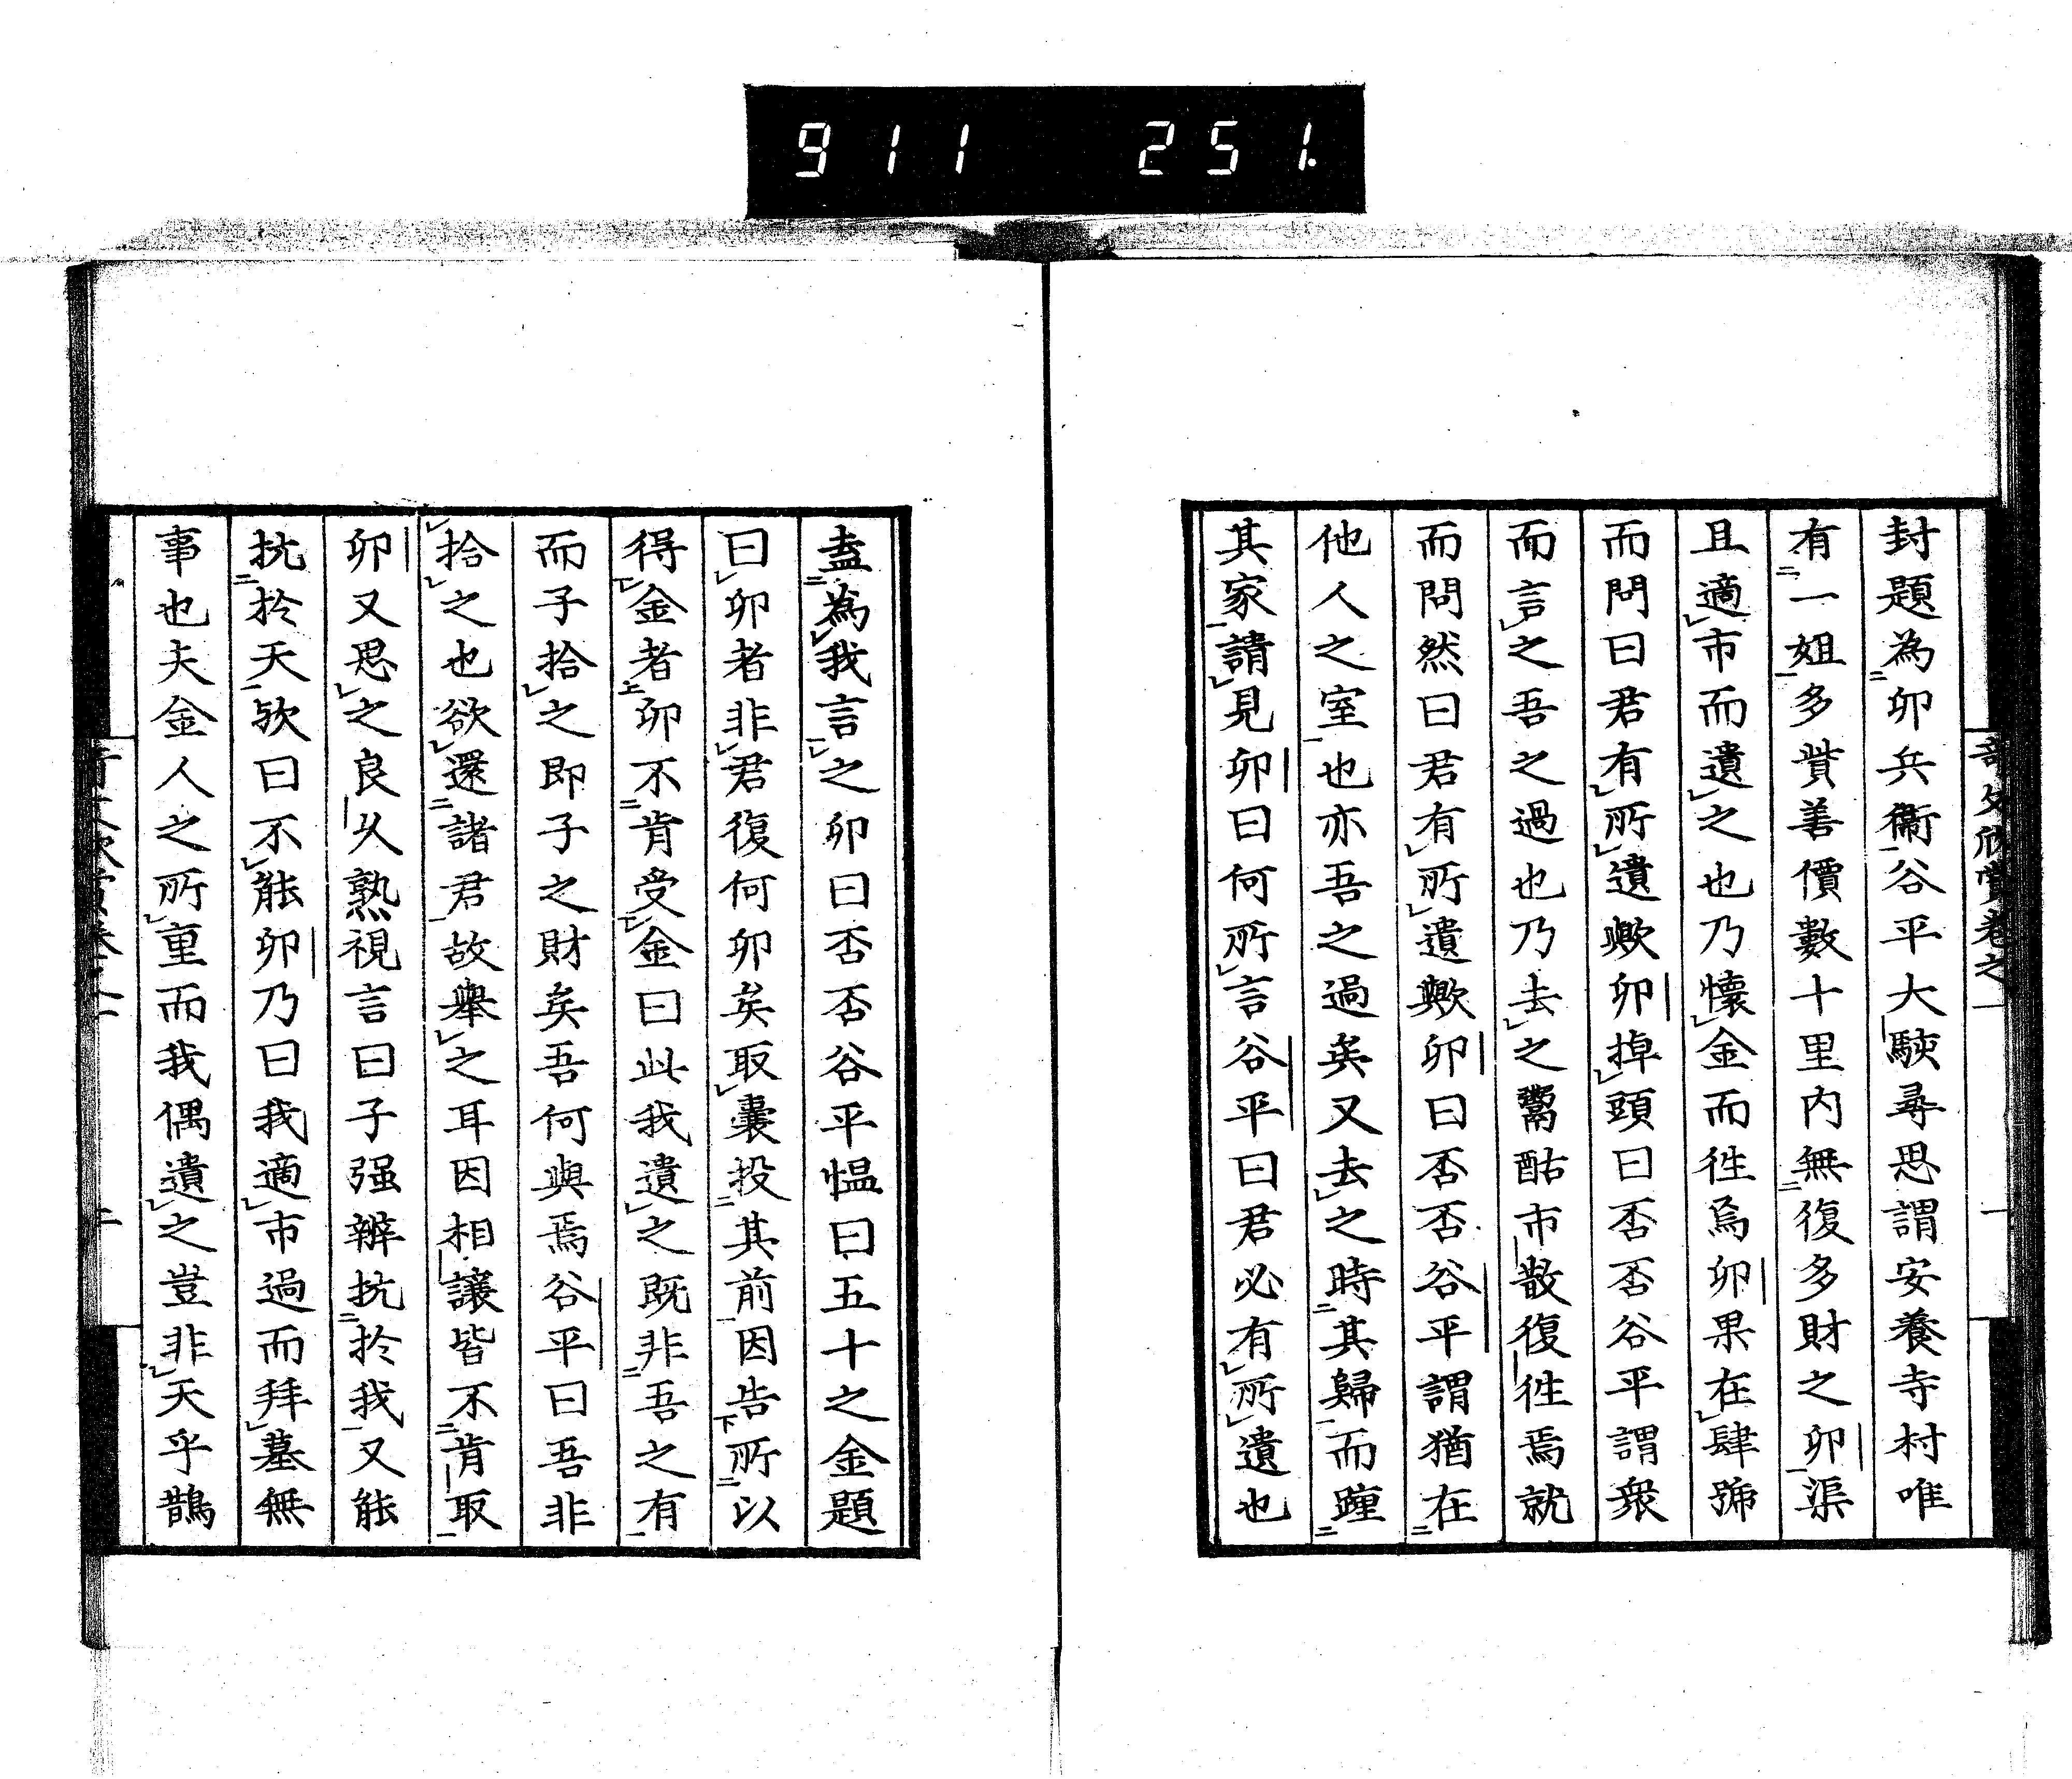 911 251.
奇文欣賞卷之一 一
封題為卯兵衞谷平大駭尋思謂安養寺村唯
有一姐多貲善價數十里内無復多財之卯渠
且適市而遺之也乃懷金而徃焉卯果在肆號
而問曰君有所遺歟卯掉頭曰否否谷平謂衆
而言之吾之過也乃去之鬻酤市散復徃焉就
而問然曰君有所遺歟卯曰否否谷平謂猶在
他人之室也亦吾之過矣又去之時其歸而踵
其家請見卯曰何所言谷平曰君必有所遺也
盍為我言之卯曰否否谷平愠曰五十之金題
曰卯者非君復何卯矣取嚢投其前因告所以
得金者卯不肯受金曰此我遺之既非吾之有
而子拾之即子之財矣吾何與焉谷平曰吾非
拾之也欲還諸君故擧之耳因相讓皆不肯取
卯又思之良久熟視言曰子强辨抗於我又能
抗於天欤曰不能卯乃曰我適市過而拜墓無
事也夫金人之所重而我偶遺之豈非天乎鵲